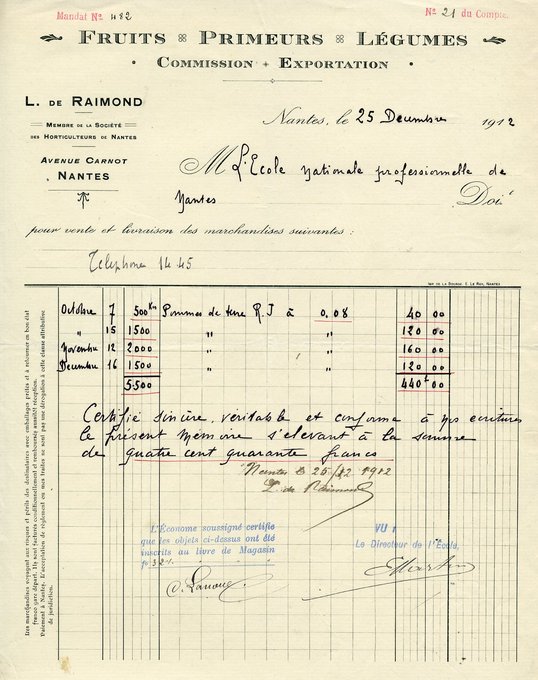 Mandat No 482
No 21 du Compte
FRUITS PRIMEURS LÉGUMES
COMMISSION + EXPORTATION
L. DE RAIMOND
MEMBRE DE LA SOCIÉTÉ
DES HORTICULTEURS DE NANTES
AVENUE CARNOT
NANTES
Nantes, le 25 Decembre 1912
M L'Ecole nationale professionnelle de
Nantes Doit
pour vente et livraison des marchandises suivantes :
Telephone 14.45
IMP. DE LA BOURSE. E. LE ROY, NANTES
Octobre 7 500 Kos Pommes de terre R. J à 0,08 40 00
" 15 1500 " " 120 00
Novembre 12 2000 " " 160 00
Decembre 16 1500 " " 120 00
5.500 440 f 00
Certifié sincère, véritable et conforme à nos écritures
le présent Mémoire s'elevant à la somme
de quatre cent quarante francs
Nantes le 25/12 1912
L. de Raimond
L'Économe soussigné certifie
que les objets ci-dessus ont été
inscrits au livre de Magasin
fo 321.
VU :
Le Directeur de l'École,
Les marchandises voyagent aux risques et périls des destinataires avec emballages prêtés et à retourner en bon état
franco gare départ. Ils sont facturés conditionnellement et remboursés aussitôt réception.
Paiement à Nantes. L'acceptation de règlement ou mes traites ne sont pas une dérogation à cette clause attributive
de juridiction.